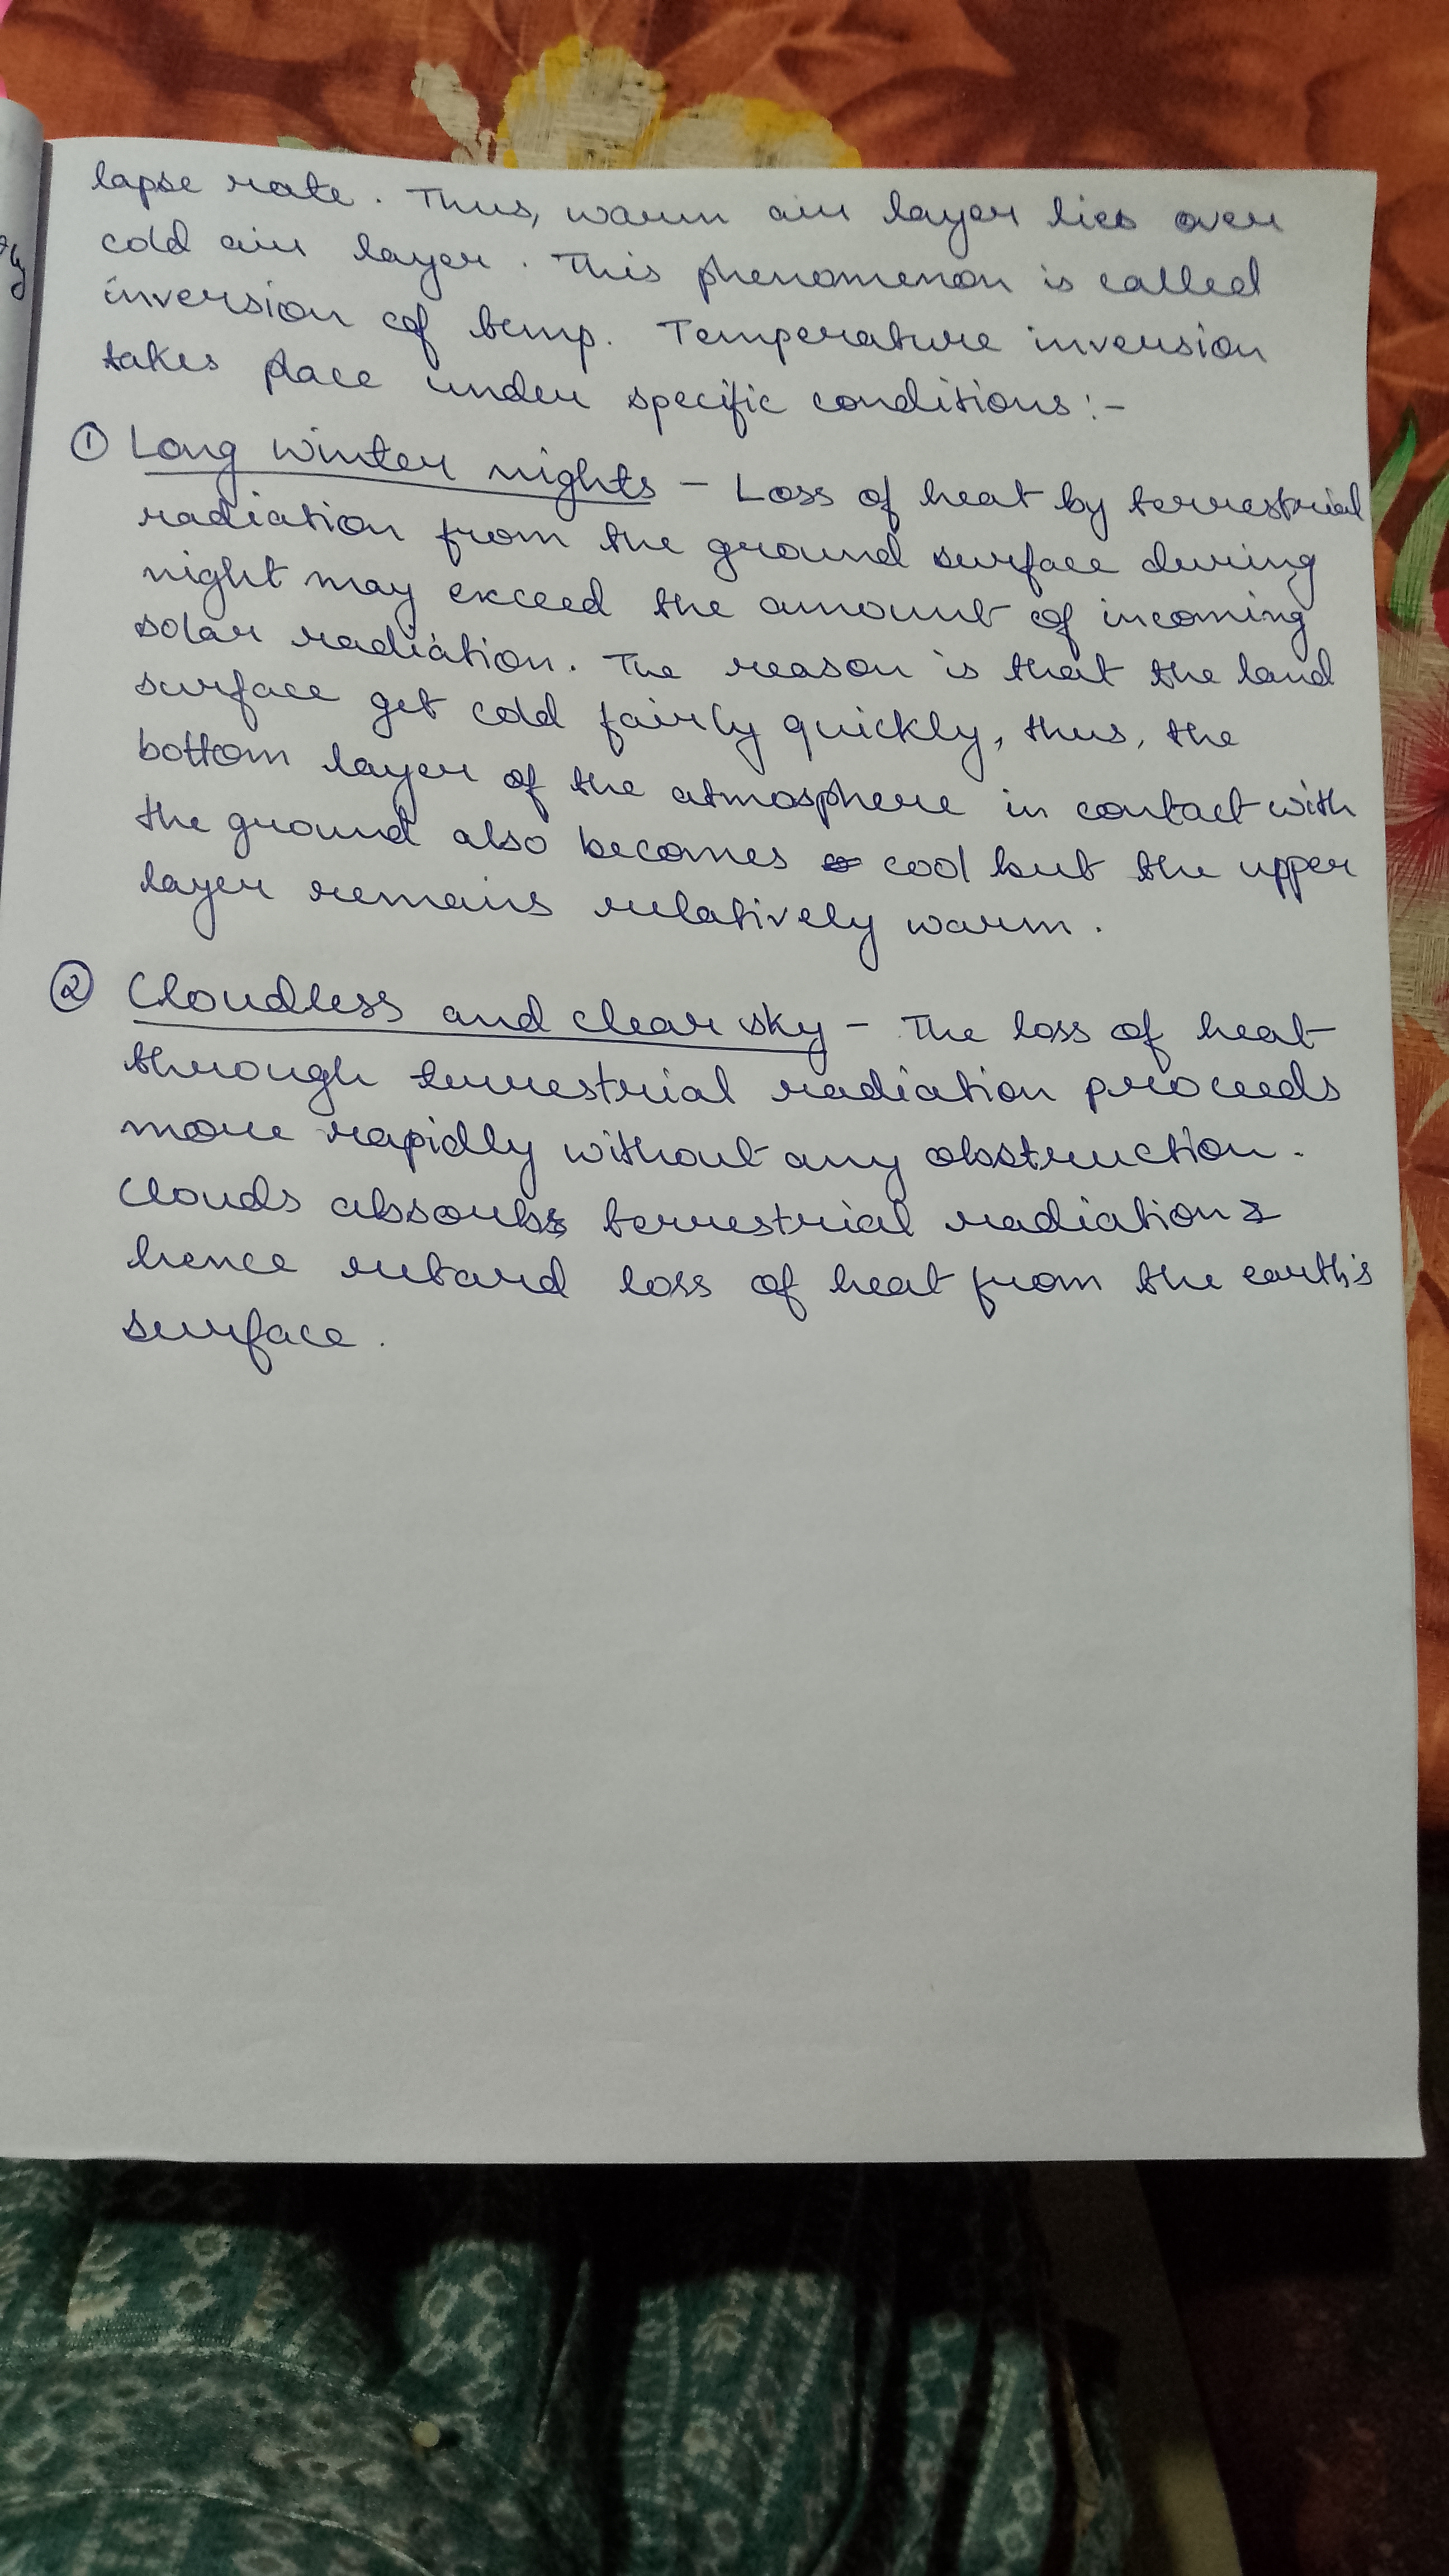 lapse rate. Thus, warm air layer lies over
cold air layer. This phenomenon is called
inversion of temp. Temperature inversion
takes place under specific conditions:-
① Long winter nights - Loss of heat by terrestrial
radiation from the ground surface during
night may exceed the amount of incoming
solar radiation. The reason is that the land
surface get cold fairly quickly, thus, the
bottom layer of the atmosphere in contact with
the ground also becomes cool but the upper
layer remains relatively warm.
② Cloudless and clear sky - The loss of heat
through terrestrial radiation proceeds
more rapidly without any obstruction.
Clouds absorbs terrestrial radiation &
hence retard loss of heat from the earth's
surface.